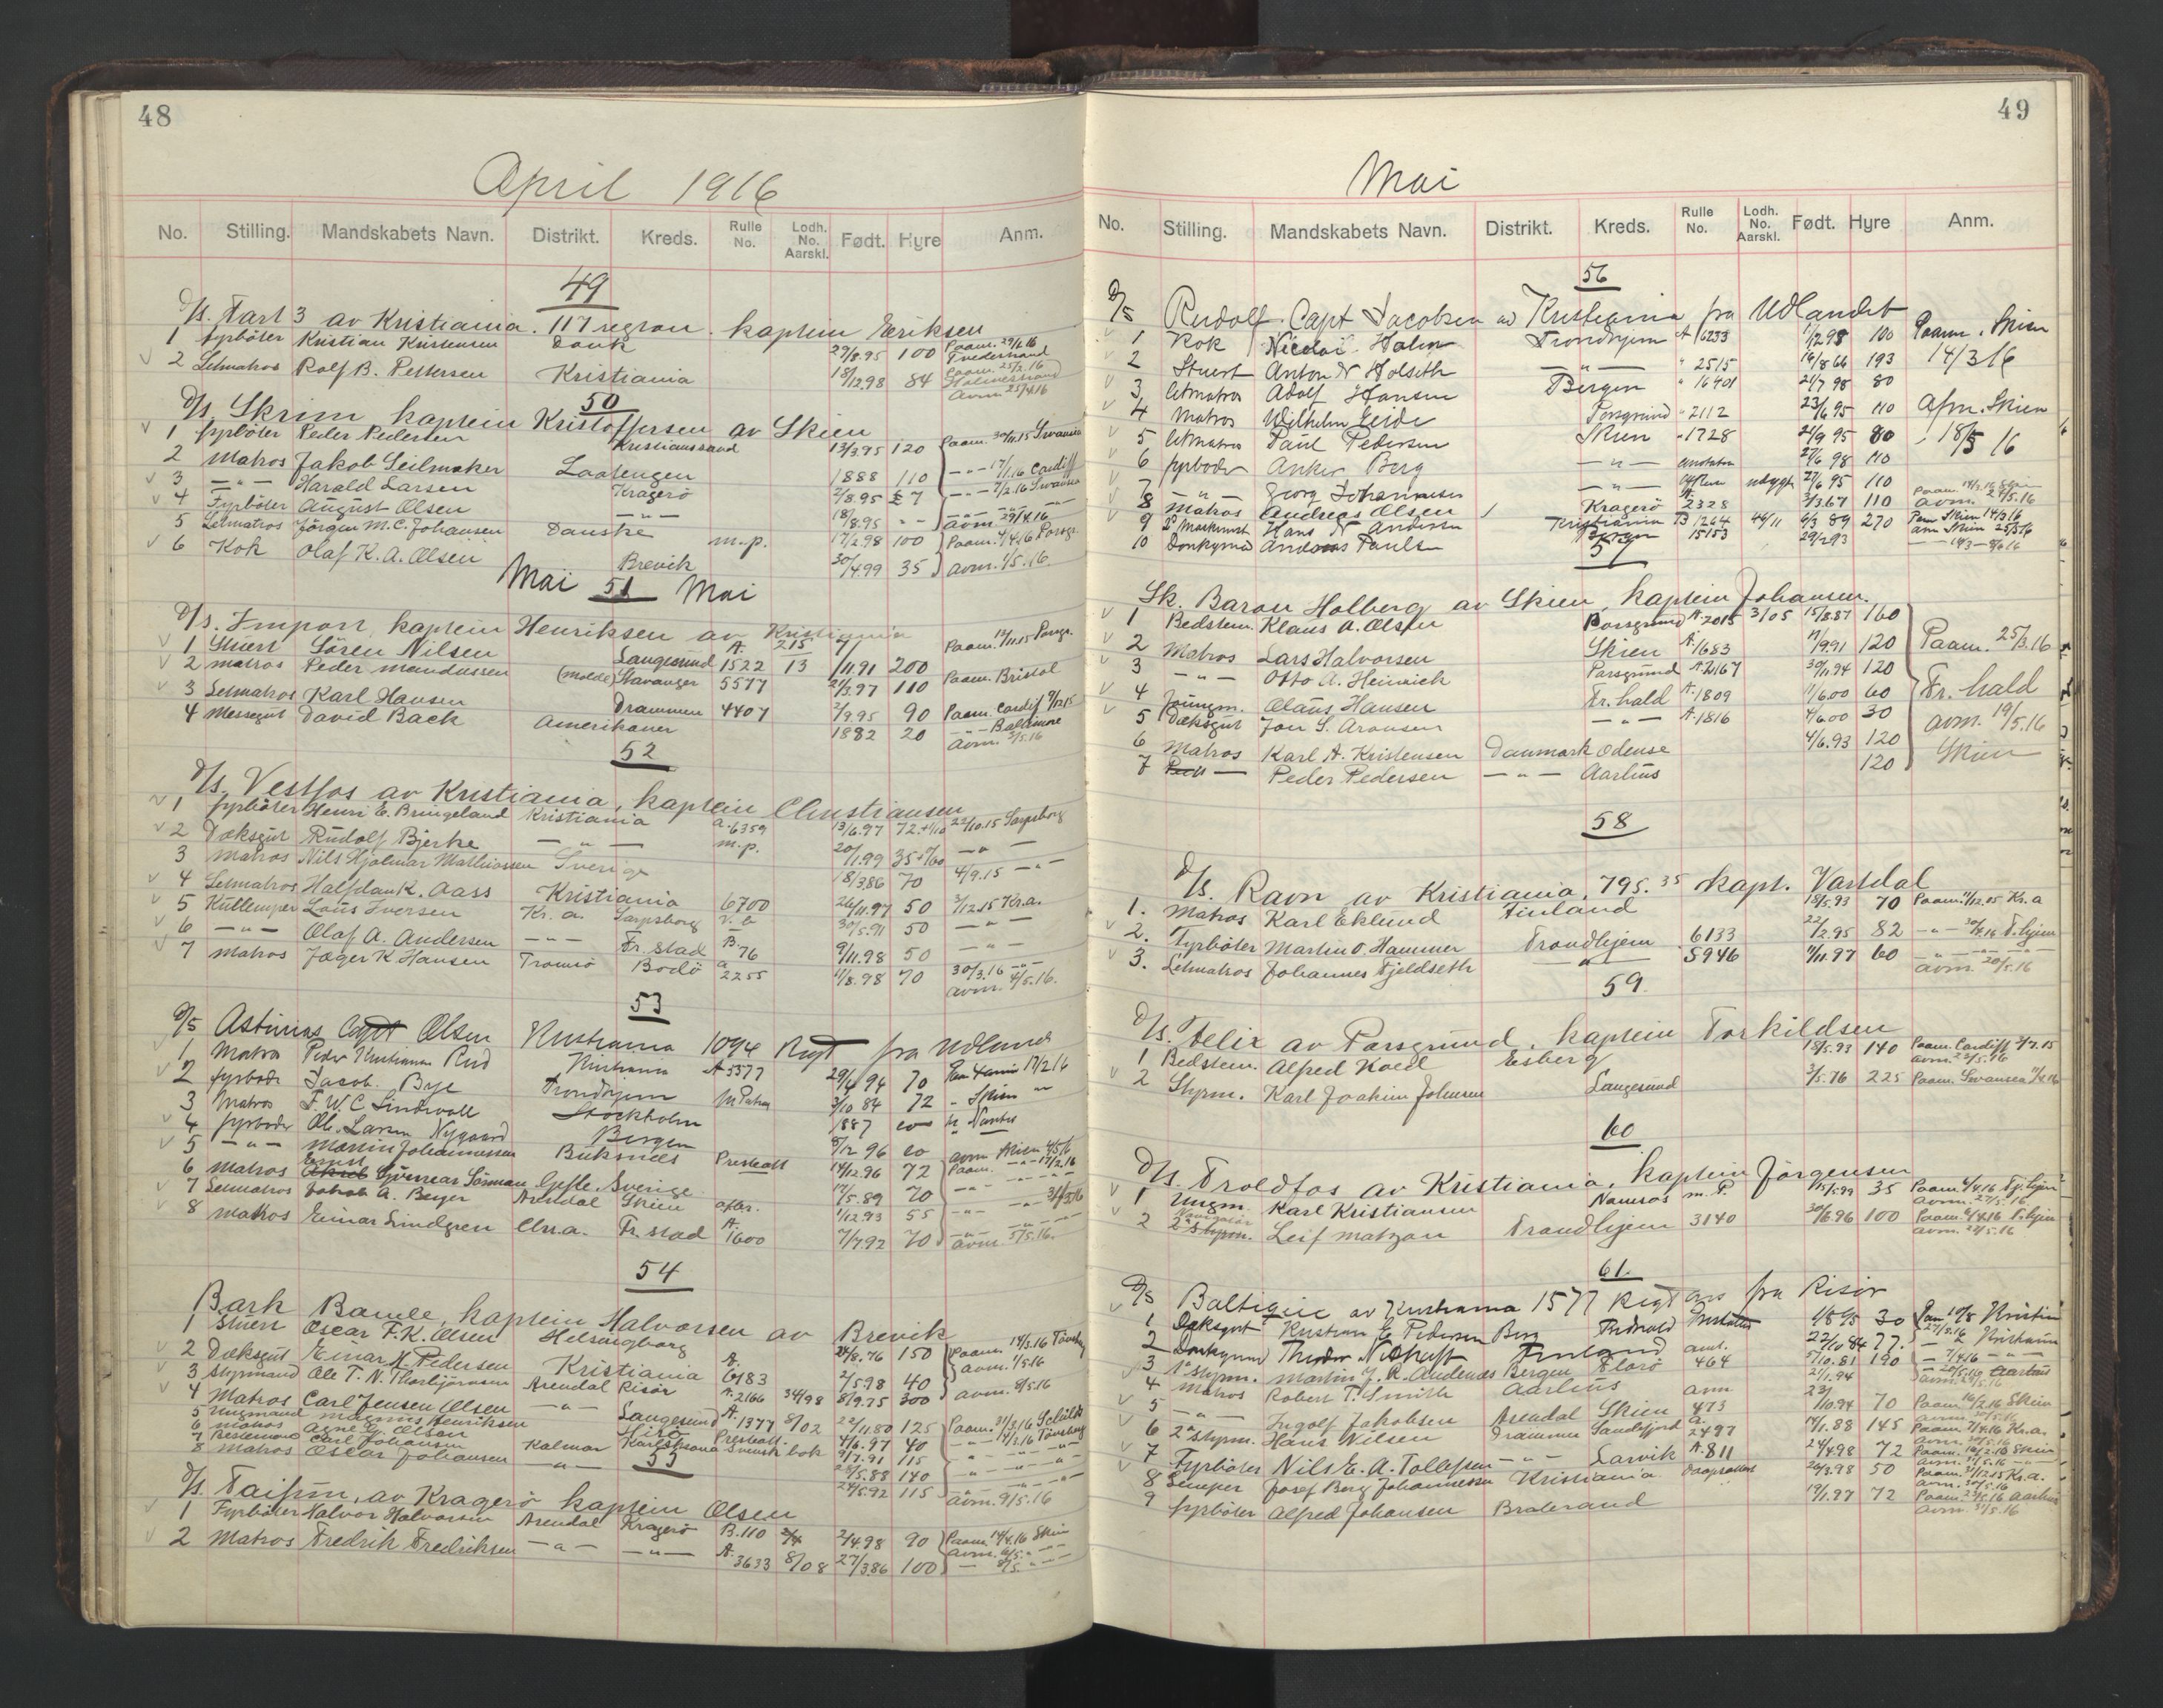 48
April 1916
No. Stilling. Mandskabets Navn. Distrikt. Kreds. Rulle No. Lodh. No. Aarskl. Født. Hyre Anm.
49
D/s. Fart 3 av Kristiania. 117 regton. kaptein Eriksen
1 fyrböter Kristian Kristensen Dansk 29/8.95 100 Paam. 29/2.16 Tvedestrand
2 Letmatros Rolf B. Pettersen Kristiania 18/12.98 84 Paam. 25/2.16 Holmestrand avm. 25/4.16
50
D/s. Skrim kaptein Kristoffersen av Skien
1 fyrböter Peder Pedersen Kristianssand 13/3.95 120 Paam. 30/11.15 Swansea
2 Matros Jakob Seilmaker Laatengen 1888 110 -"- 17/1.16 Cardiff
3 -"- Harald Larsen Kragerö 2/8.95 £7 -"- 7/2.16 Swansea
4 Fyrböter August Olsen -"- 18/8.95 -"- avm. 29/4.16
5 Letmatros Jörgen M. C. Johansen Danske m.p. 17/2.98 100 Paam. 4/4.16 Porsgr.
6 Kok Olaf K. A. Olsen Brevik 30/4.99 35 avm. 1/5.16.
Mai 51 Mai
D/s. Import, kaptein Henriksen av Kristiania
1 Stuert Sören Nilsen Langesund A. 1522 215/13 7/11.91 200 Paam. 12/11.15 Porsgr.
2 matros Peder Mandussen (Molde) Stavanger 5577 21/3.97 110 Paam. Bristol
3 Letmatros Karl Hansen Drammen 4407 2/9.95 90 Paam. Cardif 9/12.15
4 Messegut David Back Amerikaner 1882 20 -"- Baltimore avm. 3/5.16
52
D/s. Vestfos av Kristiania, kaptein Christiansen
1 fyrböter Henri E. Bringeland Kristiania a. 6359 13/6.97 72 22/10.15 Sarpsborg
2 Dæksgut Rudolf Bjerke -"- m.p. 20/1.99 35 -"-
3 Matros Nils Hjalmar Mathiassen Sverige 18/3.86 70 4/9.15 -"-
4 Letmatros Halfdan K. Aass Kristiania 6700 26/11.97 50 3/12.15 Kr.a.
5 Kullemper Laus Iversen Kr.a. Sarpsborg v.b 30/5.91 50 -"-
6 -"- Olaf A. Andersen -"- Fr.stad B. 76 9/11.98 50 -"-
7 matros Jæger K Hansen Tromsö Bodö a 2255 11/8.98 70 30/3.16 -"- avm. 4/5.16.
53
D/S Asturias Capt Olsen Kristiania 1094 Regt fra Udland
1 Matros Peder Kristiansen Rud Kristiania A 5577 29/4 94 70 17/2 16
2 fyrböder Jacob Bye Trondhjem 3/10 84 72 " Skien "
3 Matros F. W. C. Lindwall Stockholm 1887 " Nantes
4 fyrböder Ole Larsen Nygaard Bergen 8/12 96 avm Skien 4/5 16
5 -"- Martin Johannessen Buksnæs Presteatt 14/12.96 72 Paam. -"- 17/2.16
6 Matros Ernst Gunnar Sörman Gefle. Sverige 14/5.89 70 -"-
7 Letmatros Jakob A. Beyer Arendal Skien 1/12.93 55 -"-
8 Matros Einar Lindgren Chr.a. Fr. stad A. 1600 7/7.92 70 avm. 5/5.16.
54
Bark Bamle, kaptein Halvorsen av Brevik
1 Stuert Oscar F. K. Olsen Helsingborg 24/8.76 150 Paam. 14/3.16 Tönsberg
2 Dæksgut Einar H Pedersen Kristiania A. 6783 2/5.98 40 avm. 1/5.16
3 Styrmand Ole T. N. Thorbjörnsen Arendal Risör A. 2166 34/98 8/9.75 300 avm. 8/5.16
4 Matros Carl Jensen Olsen -"- Langesund A. 1377 8/02 22/11.80 125 Paam. 31/3.16
5 Ungmand Magnus Henriksen Presteatt 4/6.97 40 -"- 14/3.16 Tönsberg
6 matros Agne G. Olsson Kalmar Karlskrona Svensk bok 9/7.91 115 -"-
7 Bestemand Carl Johansen -"- 25/5.88 140 -"-
8 Matros Oscar Johansen 24/5.92 115 avm. 9/5.16
55
D/s. Taifun, av Kragerö kaptein Olsen
1 Fyrböter Halvor Halvorsen Arendal Kragerö B. 110 2/4.98 90 Paam. 14/4.16 Skien
2 Matros Fredrik Fredriksen -"- -"- A. 3633 8/08 27/3.86 100 avm. 8/5. -"-
49
Mai
No. Stilling. Mandskabets Navn. Distrikt. Kreds. Rulle No. Lodh. No. Aarskl. Født. Hyre Anm.
56
D/S Rudolf. Capt Jacobsen av Kristiania fra Udlandet
1 Kok Nicolai Holm Trondhjem A 6233 1/12 98 100 Paam. Skien
2 Stuert Anton N Holseth -"- " 2515 16/8 66 193 14/3 16
3 letmatros Adolf Hansen Bergen " 16401 21/7 98 80
4 Matros Wilhelm Eide Porsgrund " 2112 23/6 95 110 Afm. Skien
5 letmatros Paul Pedersen Skien " 1728 21/9 95 80 18/5 16
6 fyrböder Anker Berg -"- 27/6 98 110
7 -"- Georg Johannesen -"- 27/6 95 110
8 Matros Andreas Olsen Kragerö A. 2328 3/3.67 110 Paam. 14/3.16 Skien avm. 24/5.16
9 2 Maskinist Hans N. Andersen Kristiania B 1264 44/11 9/3 89 270 Paam Skien 14/3 16 avm Skien 25/5 16
10 Donkymand Andreas Paulsen Bergen 15153 29/2 93
57
Sk. Baron Holberg av Skien, kaptein Johansen.
1 Bedstem. Klaus A. Olsen Porsgrund A. 2015 3/05 15/8.87 160
2 Matros Lars Halvorsen Skien A. 1683 17/9.91 120 Paam. 25/3.16
3 -"- Otto A. Heinrich Porsgrund A. 2167 30/1.94 120
4 Jungm. Olaus Hansen Fr. hald A. 1809 11/6.00 60 Fr. hald
5 Dæksgut Jon S. Aronsen -"- A. 1816 4/6.00 30 avm. 19/5.16
6 Matros Karl A. Kristensen Danmark Odense 4/6.93 120 Skien
7 -"- Peder Pedersen -"- Aarhus 120
58
D/s. Ravn av Kristiania, 795.35 kapt. Vartdal
1. Matros Karl Eklund Finland 18/5.93 70 Paam. 11/12.15 Kr.a
2. Fyrböter Martin O. Hammer Trondhjem 6133 22/2.95 82 -"- T.hjem
3. Letmatros Johannes Fjeldseth -"- 5946 11/11.97 60 avm. 20/5.16
59
D/s. Felix av Porsgrund, kaptein Torkildsen
1 Bedstem. Alfred Koed Esberg 18/5.93 140 Paam. Cardiff 3/7.15 avm. 22/5.16
2 Styrm. Karl Joakim Johnsen Langesund 3/5.76 225 Paam. Swansea 11/4.16
60
D/s. Troldfos av Kristiania, kaptein Jörgensen
1 Ungm. Karl Kristiansen Namsos m. P. 15/5.99 35 Paam. 4/4.16 T.hjem avm. 27/5.16
2 2. Styrm. Leif Matzon Trondhjem 3140 30/6.96 100 Paam. 6/4.16 T.hjem avm. 22/5.16
61.
D/S Baltique av Kristiania 1577 Regt fra Risör
1 Dæksgut Kristian E Pedersen 98 30
2 Donkymand Theodor Finland 22/10 84 77.
3 1ste Styrm. Martin J. R. Andenæs Bergen Florö 464 5/10.81 190 7/4.16
4 Matros Robert T. Smith Aarhus 21/1.94 20/5.16 Aarhus
5 -"- Ingolf Jakobsen Arendal Skien 473 23/10.94 70 Paam. 16/2.16 Skien
6 2. Styrm. Hans Nilsen Drammen Sandefjord a. 2497 14/1.88 145 Paam. 7/4.16 Kr.a.
7 Fyrböter Nils E. A. Tollefsen -"- Larvik A. 811 24/4.98 72 Paam. 16/2.16 Skien
8 Lemper Josef Berg Johannessen Kristiania 26/3.98 50 Paam. 31/12.15 Kr.a.
9 fyrböter Alfred Johansen Braterand 19/1.97 72 Paam. 23/5.16 Aarhus